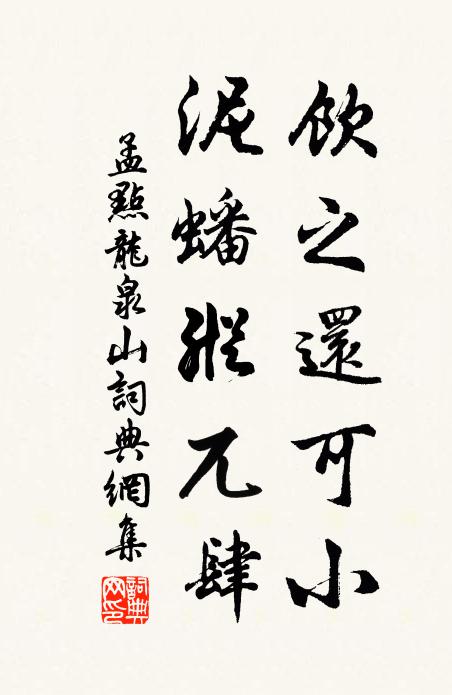 飲之還可小
泥蟠縱兀肆
孟點龍泉山詞典網集
詞典网印